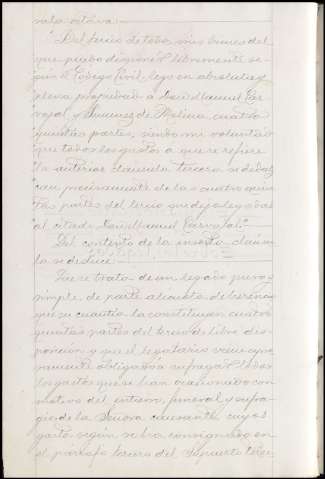 sula octava
"Del tercio de todos mis bienes del
que puedo disponer libremente se-
gún el Código Civil, lego en absoluta y
plena propiedad á Don Manuel Car-
vajal y Jimenez de Molina cuatro
quintas partes, siendo mi voluntad
que todos los gastos a que se refiere
la anterior cláusula tercera se deduz-
can precisamente de las cuatro quin-
tas partes del tercio que dejo legadas
al citado Don Manuel Carvajal."
Del contexto de la inserta cláusu-
la se deduce:
Que se trata de un legado puro y
simple, de parte alícuota de herencia
que su cuantía la constituyen cuatro
quintas partes del tercio de libre dis-
posición y que el legatario viene
obligado a sufragar todos
los gastos que se han ocasionado con
motivo del entierro, funeral y sufra-
gios de la Señora causante, cuyos
gastos según se ha consignado en
el párrafo tercero del Supuesto